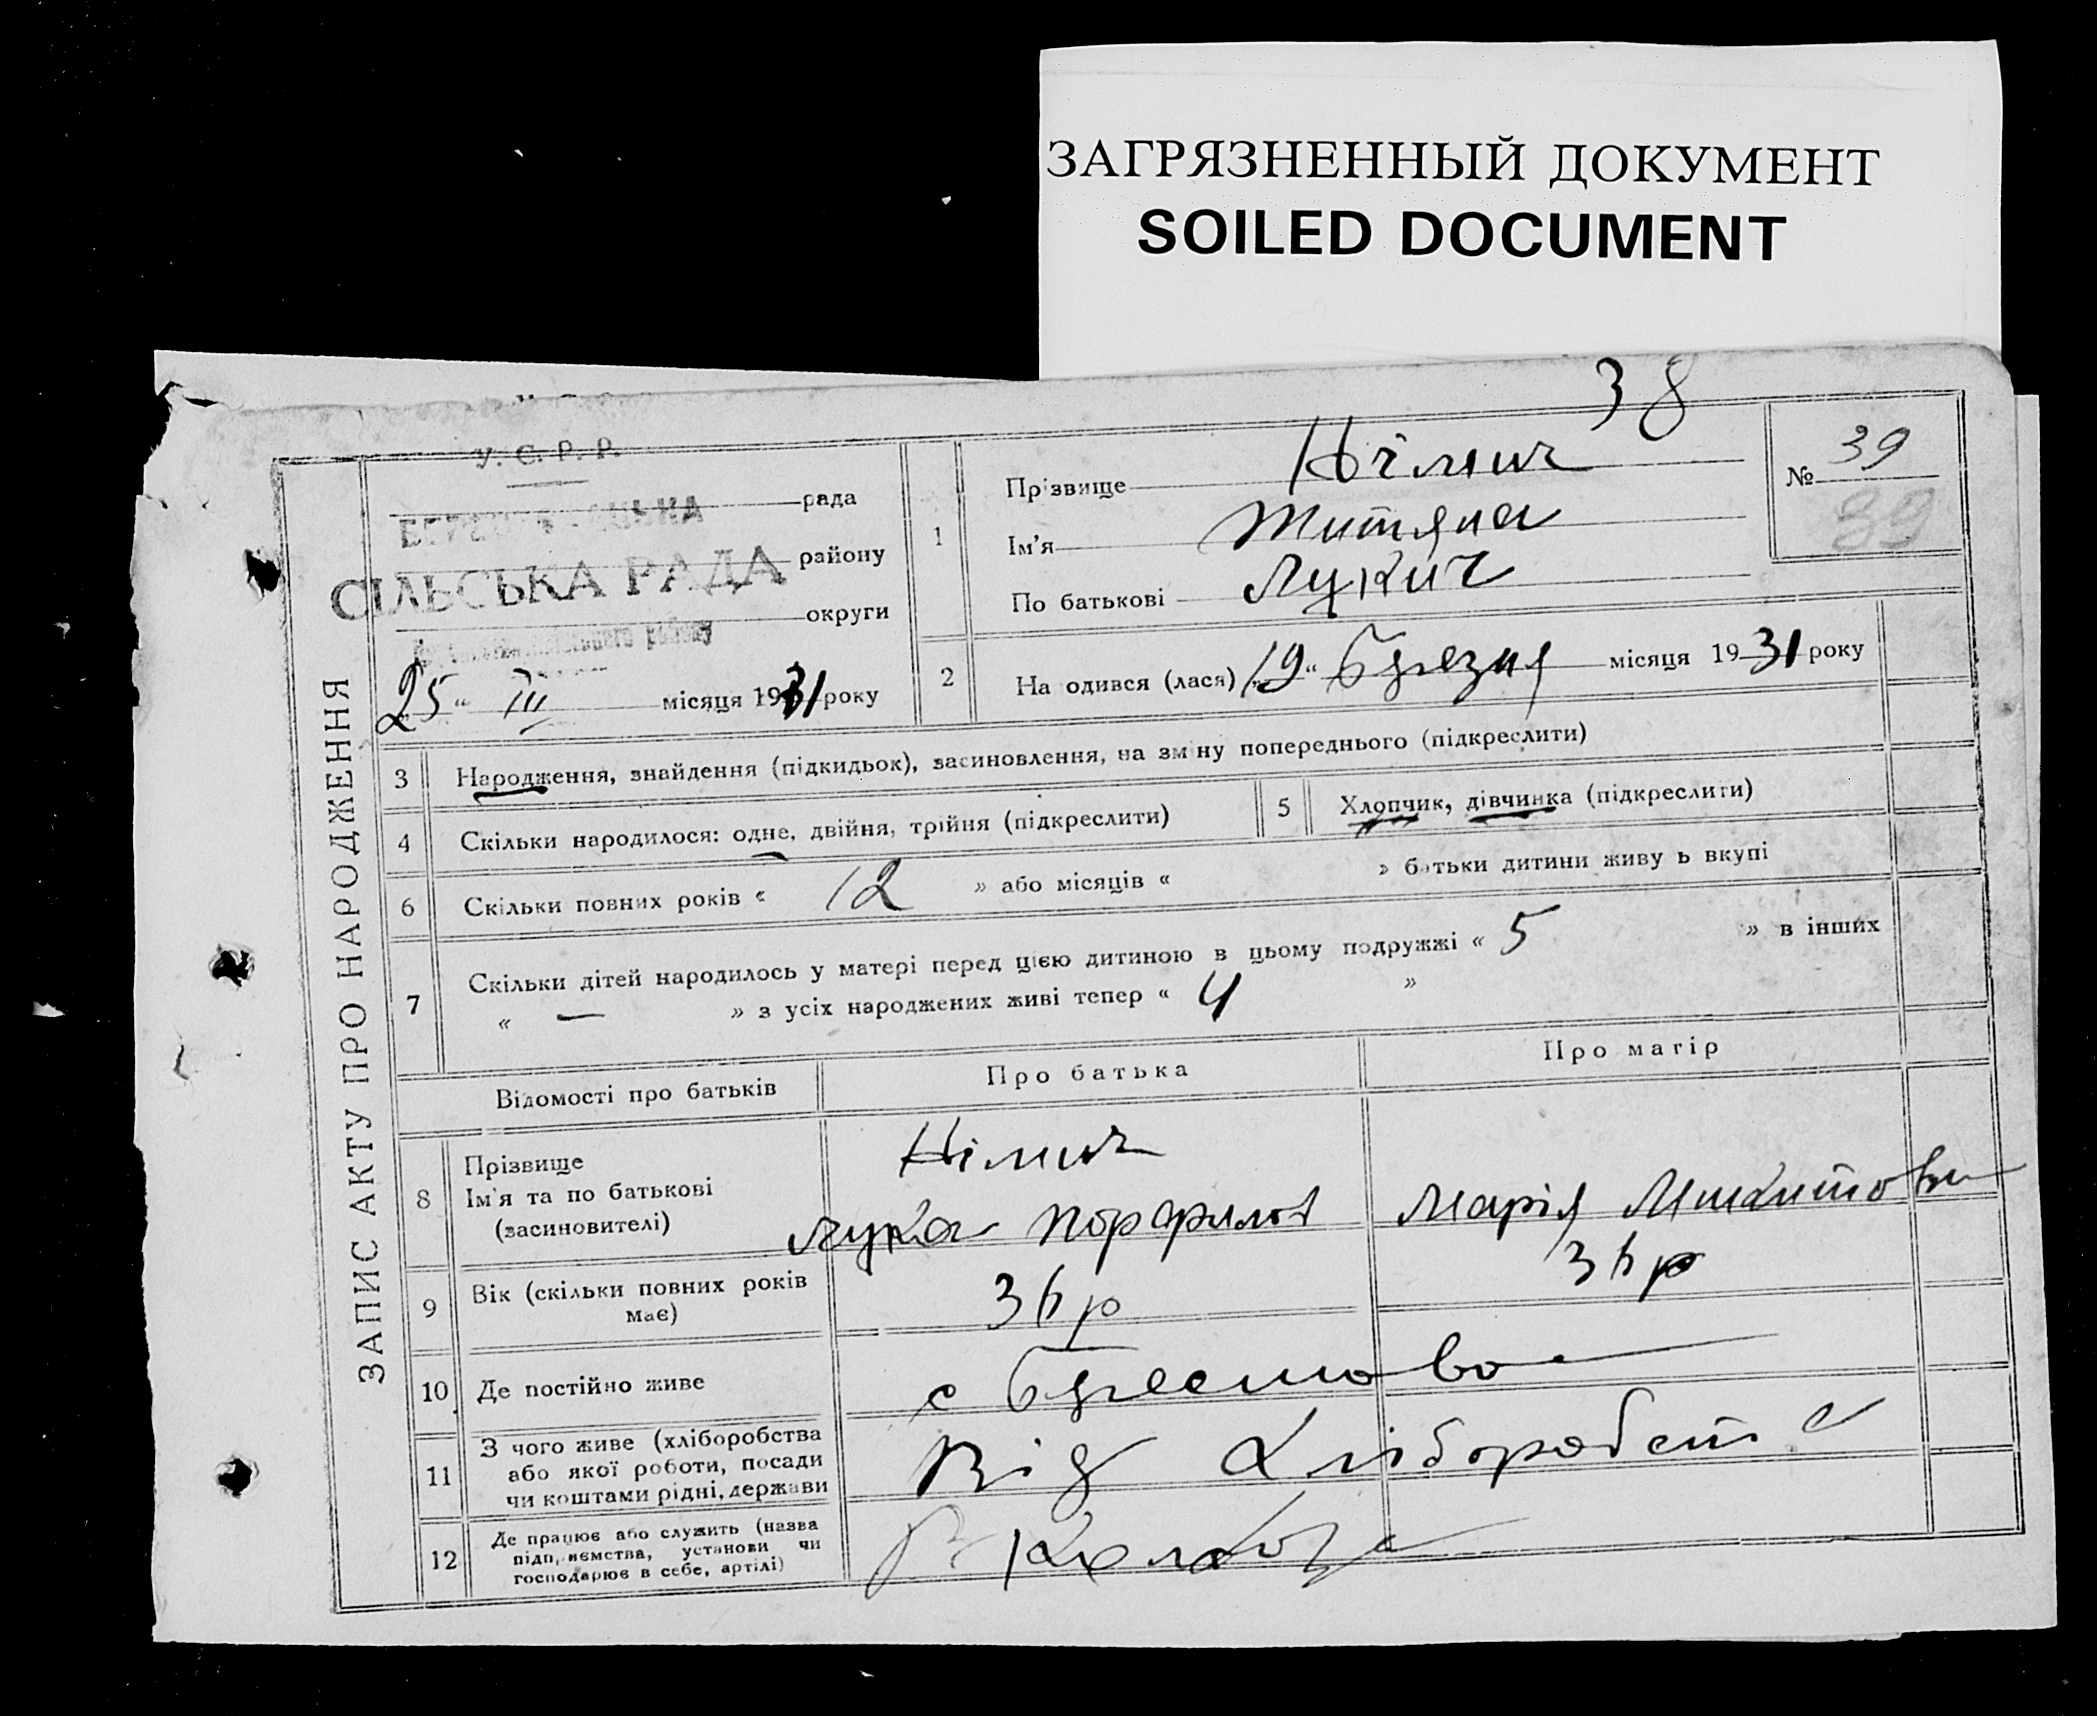 ЗАГРЯЗНЕННЫЙ ДОКУМЕНТ
SOILED DOCUMENT
38
ЗАПИС АКТУ ПРО НАРОДЖЕННЯ
У. С. Р. Р.
рада
району
СІЛЬСЬКА РАДА
округи
25 " III місяця 1931 року
1
Прізвище Німич
Ім'я
По батькові Лукич
№ 39
39
2 На одився (лася) „19“ Березня місяця 1931 року
3 Народження, знайдення (підкидьок), засиновлення, на зміну попереднього (підкреслити)
4 Скільки народилося: одне, двійня, трійня (підкреслити)
5 Хлопчик, дівчинка (підкреслити)
6 Скільки повних років « 12 » або місяців « » батьки дитини живу ь вкупі
7 Скільки дітей народилось у матері перед цією дитиною в цьому подружжі « 5 » в інших
« — » з усіх народжених живі тепер « 4 »
Відомості про батьків
Про батька
Про матір
8 Прізвище
Ім'я та по батькові
(засиновителі)
Німич
Лука
Марія
9 Вік (скільки повних років
має)
36 р
36 р
10 Де постійно живе
с Берестово
11 З чого живе (хліборобства
або якої роботи, посади
чи коштами рідні, держави
Від хліборобств
12 Де працює або служить (назва
підп,иємства, установи чи
господарює в себе, артілі)